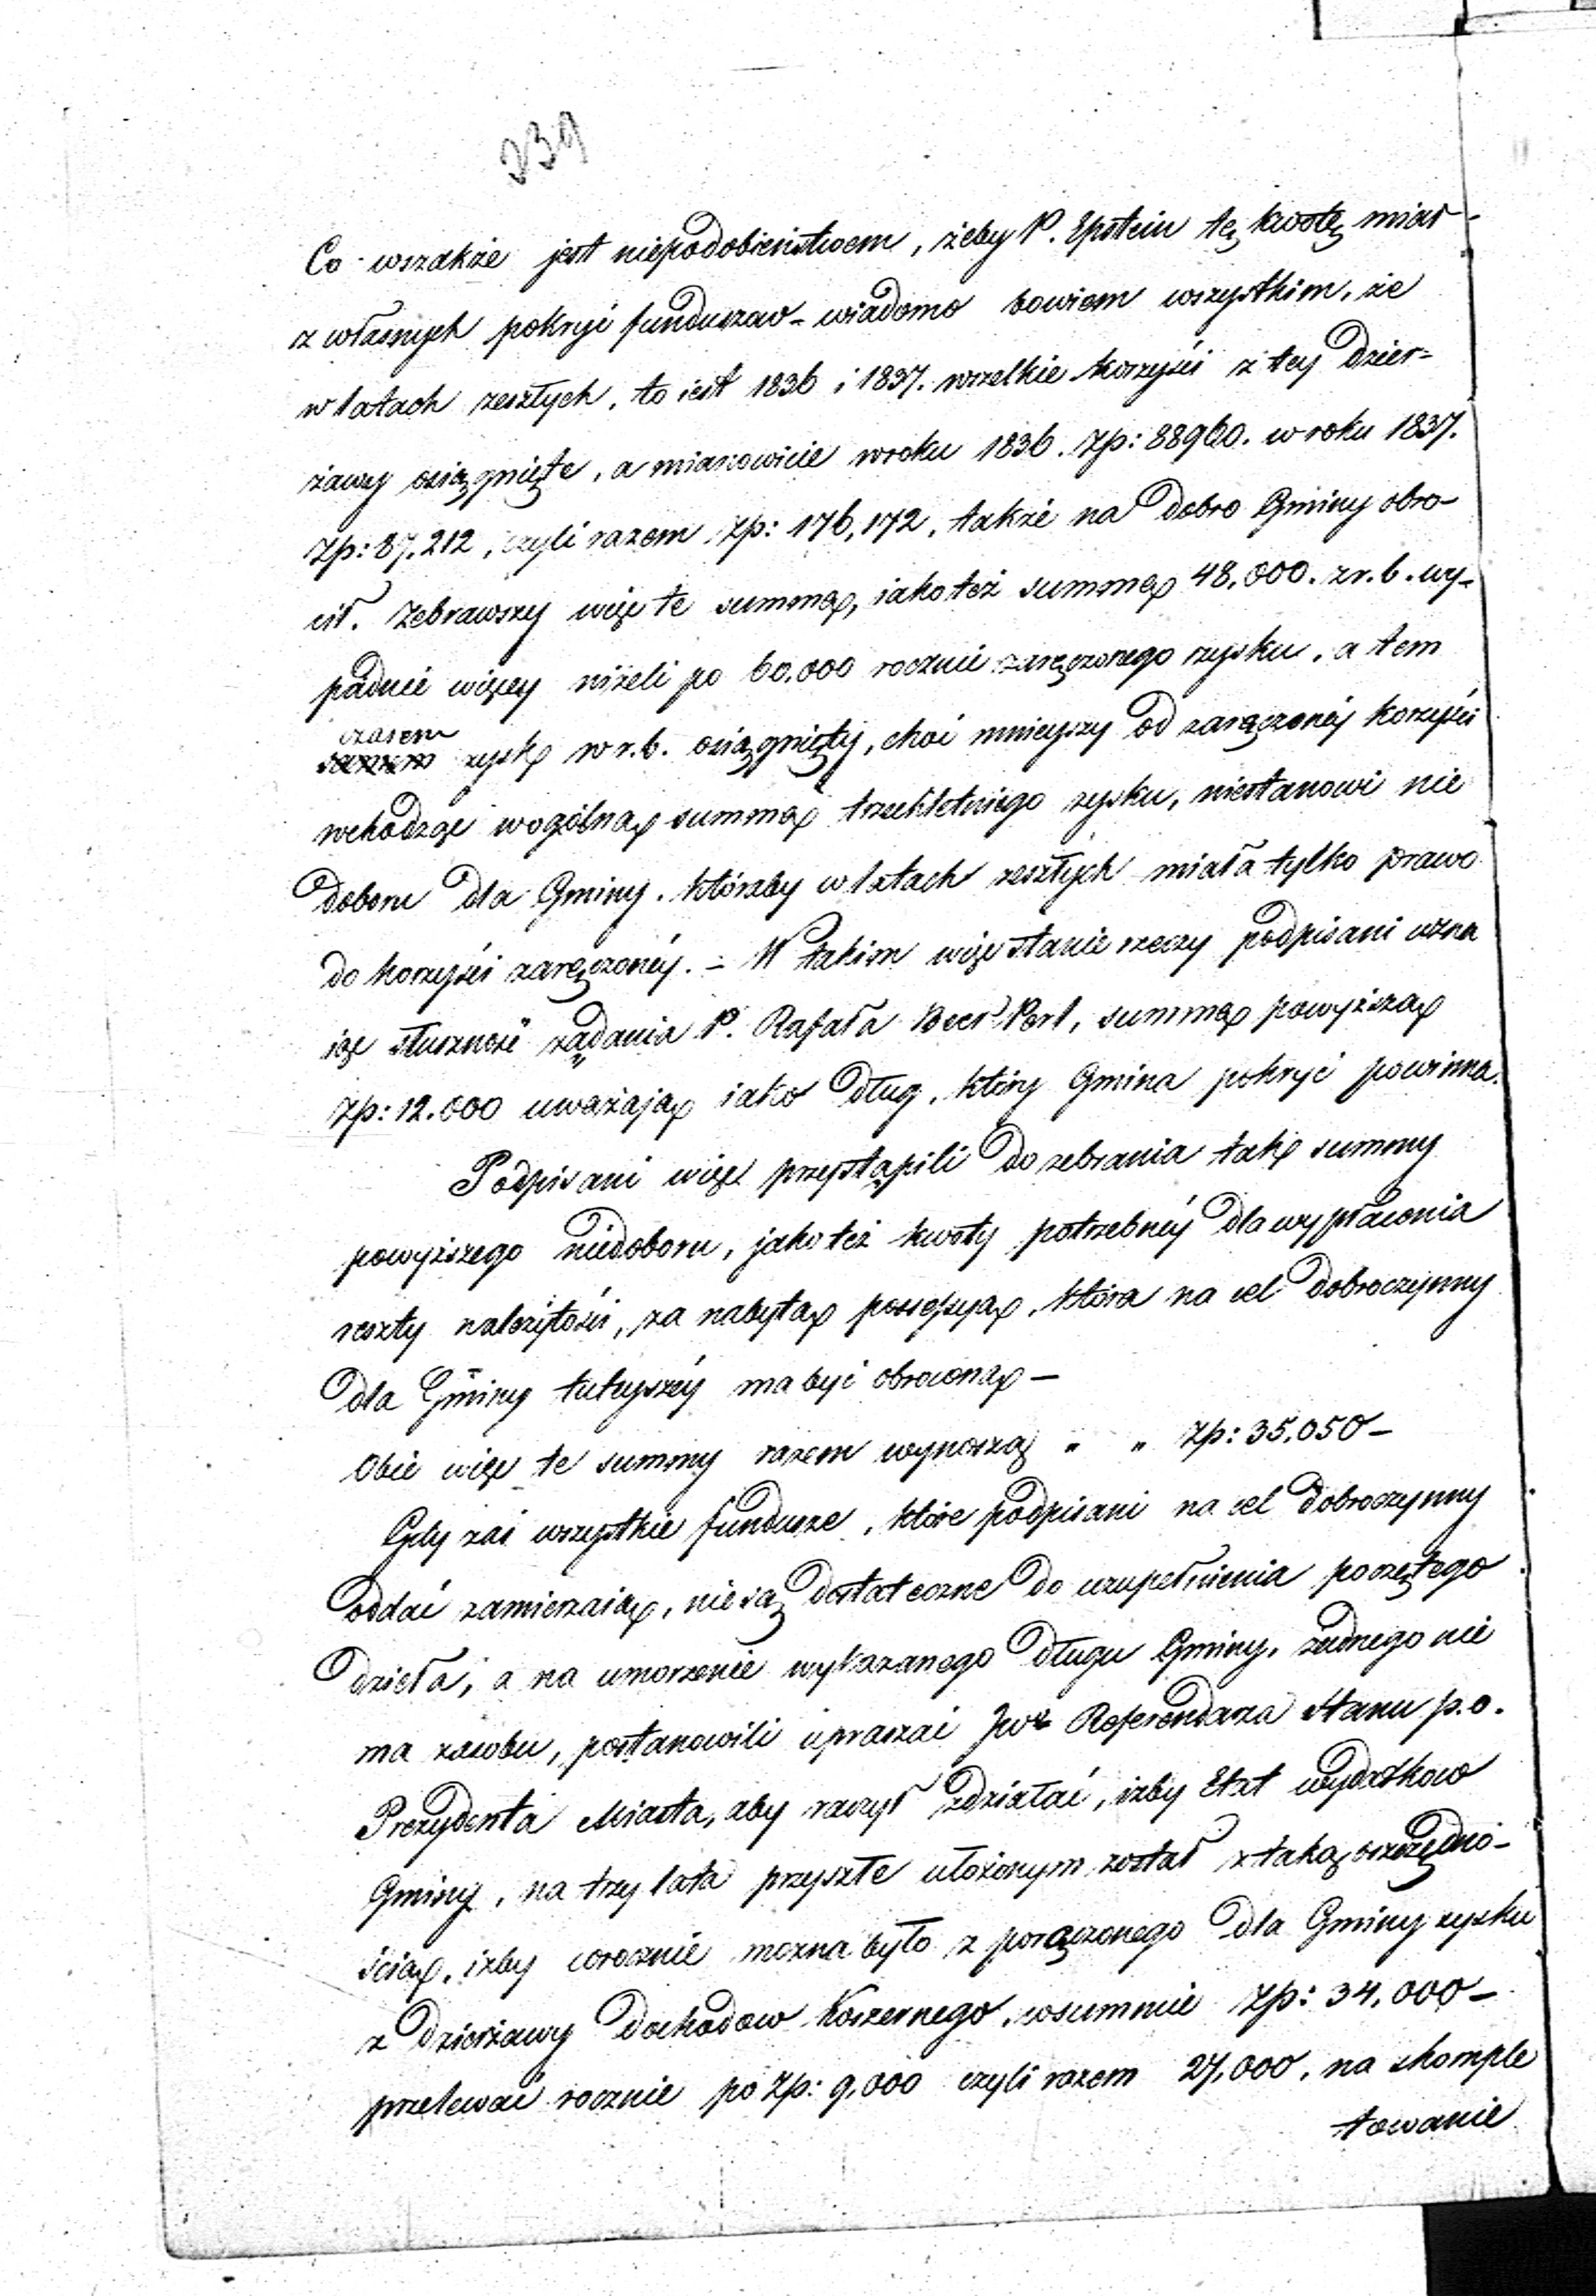 239
Co wszakże jest niepodobieństwem, żeby P. Epstein tę kwotę miał
z własnych pokryć funduszow – wiadomo bowiem wszystkim, że
w latach zeszłych, to iest 1836 i 1837. wszelkie korzyści z tey dzier=
żawy osiągnięte, a mianowicie w roku 1836. Zp: 88960. w roku 1837.
Zp: 87.212, czyli razem Zp: 176,172, także na dobro Gminy obro-
cił. Zebrawszy więc te summę, iakoteż summę 48,000. z r. b. wy-
padnie więcey niżeli po 60.000 rocznie zaręczonego zysku, a tem
czasem
samem zysk w r. b. osiągnięty, choć mnieyszy od zaręczonéj korzyści
wchodząc w ogólną summę trzechletniego zysku, niestanowi nie
doboru dla Gminy. któraby w latach zeszłych miała tylko prawo
do korzyści zaręczonéy. – W takim więc stanie rzeczy podpisani uzna
ią słuszność żądania P. Rafała Beer Perl, summę powyższą
Zp: 12.000 uważają iako dług, który Gmina pokryć powinna.
Podpisani więc przystąpili do zebrania tak summy
powyższego niedoboru, jakoteż kwoty potrzebnéy dla wypłacenia
reszty należytości, za nabytą possessyą, która na cel dobroczynny
dla Gminy tuteyszéy ma być obroconą –
Obie więc te summy razem wynoszą " " Zp: 35,050 –
Gdy zaś wszystkie fundusze, które podpisani na cel dobroczynny
oddać zamierzaią, nie są dostateczne do uzupełnienia poczętego
dzieła, a na umorzenie wykazanego długu Gminy, żadnego nie
ma zasobu, postanowili upraszać JW Referendarza Stanu p. o.
Prezydenta Miasta, aby raczył zdziałać, iżby Etat wydatkow
Gminy, na trzy lata przyszłe ułożonym został z taką oszczędno-
ścią, iżby corocznie można było z poręczonego dla Gminy zysku
z dzierżawy dochodow Koszernego, w summie Zp: 34,000 –
przelewać rocznie po Zp: 9,000 czyli razem 27,000, na skomple
towanie